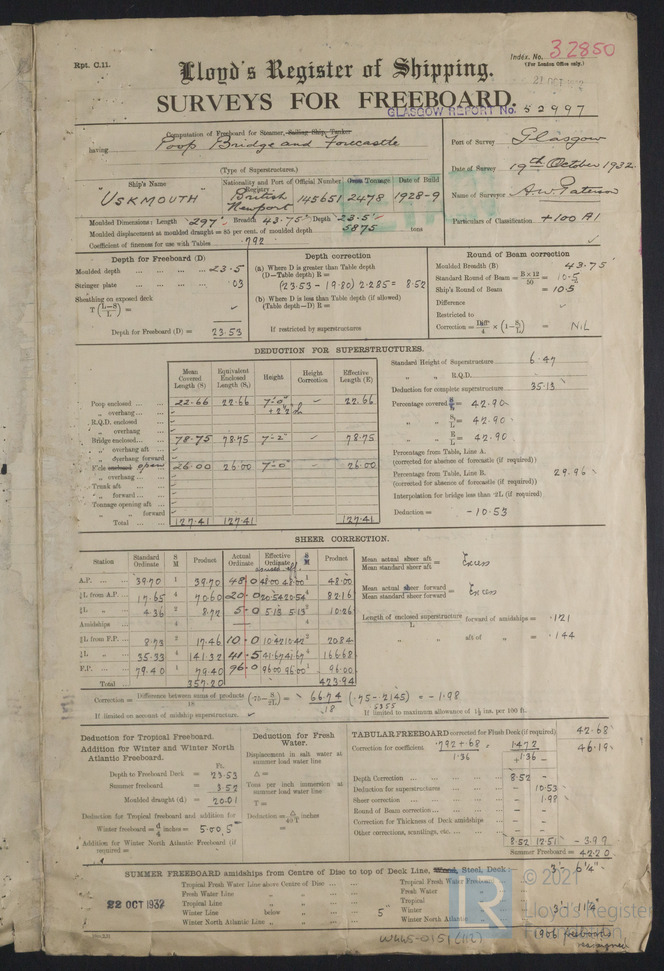 Rpt. C.11.
Index. No. 32850
(For London Office only.)
Lloyd's Register of Shipping.
21 OCT 1932
SURVEYS FOR FREEBOARD.
GLASGOW REPORT No. 52997
Computation of Freeboard for Steamer, Sailing Ship, Tanker
having Poop Bridge and Forecastle
(Type of Superstructures.)
Port of Survey Glasgow
Date of Survey 19th October 1932.
Name of Surveyor A.W. Paterson
Particulars of Classification +100 A1
Ship's Name Nationality and Port of Registry Official Number Gross Tonnage Date of Build
"USKMOUTH" British Newport 145651 2478 1928-9
Moulded Dimensions: Length 297' Breadth 43.75' Depth 23.5'
Moulded displacement at moulded draught = 85 per cent. of moulded depth 5875 tons
Coefficient of fineness for use with Tables .792
Depth for Freeboard (D)
Moulded depth ... 23.5
Stringer plate ... .03
Sheathing on exposed deck
T (L-S/L) =
Depth for Freeboard (D) = 23.53
Depth correction
(a) Where D is greater than Table depth
(D-Table depth) R =
(23.53 - 19.80) 2.285 = 8.52
(b) Where D is less than Table depth (if allowed)
(Table depth-D) R =
If restricted by superstructures
Round of Beam correction
Moulded Breadth (B) 43.75
Standard Round of Beam = B×12/50 = 10.5
Ship's Round of Beam = 10.5
Difference
Restricted to
Correction = Diff/4 × (1-S₁/L) = NIL
DEDUCTION FOR SUPERSTRUCTURES.
Mean Covered Length (S) Equivalent Enclosed Length (S₁) Height Height Correction Effective Length (E)
Poop enclosed ... 22.66 22.66 7'-0" 22.66
" overhang ...
R.Q.D. enclosed
" overhang
Bridge enclosed ... 78.75 78.75 7'-2" 78.75
" overhang aft ...
" overhang forward
F'cle enclosed open 26.00 26.00 7'-0" 26.00
" overhang ...
Trunk aft ...
" forward ...
Tonnage opening aft ...
" forward
Total ... 127.41 127.41 127.41
Standard Height of Superstructure ... 6.47
" " R.Q.D.
Deduction for complete superstructure 35.13
Percentage covered S/L = 42.90
" " S₁/L = 42.90
" " E/L = 42.90
Percentage from Table, Line A.
(corrected for absence of forecastle (if required))
Percentage from Table, Line B. 29.96
(corrected for absence of forecastle (if required))
Interpolation for bridge less than .2L (if required)
Deduction = -10.53
SHEER CORRECTION.
Station Standard Ordinate S M Product Actual Ordinate Effective Ordinate S M Product
A.P. ... 39.70 1 39.70 48.0 48.00 48.00 1 48.00
⅙L from A.P. ... 17.65 4 70.60 20.0 20.54 20.54 4 82.16
⅓L " 4.36 2 8.72 5.0 5.13 5.13 2 10.26
Amidships ... 4 4
⅓L from F.P. ... 8.73 2 17.46 10.0 10.42 10.42 2 20.84
⅙L " 35.33 4 141.32 41.5 41.67 41.67 4 166.68
F.P. ... 79.40 1 79.40 96.0 96.00 96.00 1 96.00
Total ... 357.20 423.94
Mean actual sheer aft / Mean standard sheer aft = Excess
Mean actual sheer forward / Mean standard sheer forward = Excess
Length of enclosed superstructure / L forward of amidships = .121
" " aft of " = .144
Correction = Difference between sums of products / 18 (.75 - S/2L) = 66.74 / 18 (.75 - .2145) = -1.98
.5355
If limited on account of midship superstructure.
If limited to maximum allowance of 1½ ins. per 100 ft.
Deduction for Tropical Freeboard.
Addition for Winter and Winter North Atlantic Freeboard.
Ft.
Depth to Freeboard Deck = 23.53
Summer freeboard = 3.52
Moulded draught (d) = 20.01
Deduction for Tropical freeboard and addition for
Winter freeboard = d/4 inches = 5.00, 5"
Addition for Winter North Atlantic Freeboard (if required) =
Deduction for Fresh Water.
Displacement in salt water at summer load water line
Δ =
Tons per inch immersion at summer load water line
T =
Deduction = Δ/40T inches
=
TABULAR FREEBOARD corrected for Flush Deck (if required) 42.68
Correction for coefficient .792+.68 / 1.36 1.472 / 1.36 46.19
Depth Correction ... 8.52 -
Deduction for superstructures ... - 10.53
Sheer correction ... - 1.98
Round of Beam correction ... - -
Correction for Thickness of Deck amidships ... - -
Other corrections, scantlings, etc. ...
8.52 12.51 -3.99
Summer Freeboard = 42.20
SUMMER FREEBOARD amidships from Centre of Disc to top of Deck Line, Wood, Steel, Deck:- 3'- 6¼"
22 OCT 1932
Tropical Fresh Water Line above Centre of Disc ...
Fresh Water Line " "
Tropical Line " "
Winter Line below " " 5"
Winter North Atlantic Line " "
Tropical Fresh Water Freeboard
Fresh Water "
Tropical "
Winter " 3'- 11¼"
Winter North Atlantic "
1906 freeboards reassigned
W445-0151 (1/2)
© 2021
LR
Lloyd's Register
Foundation